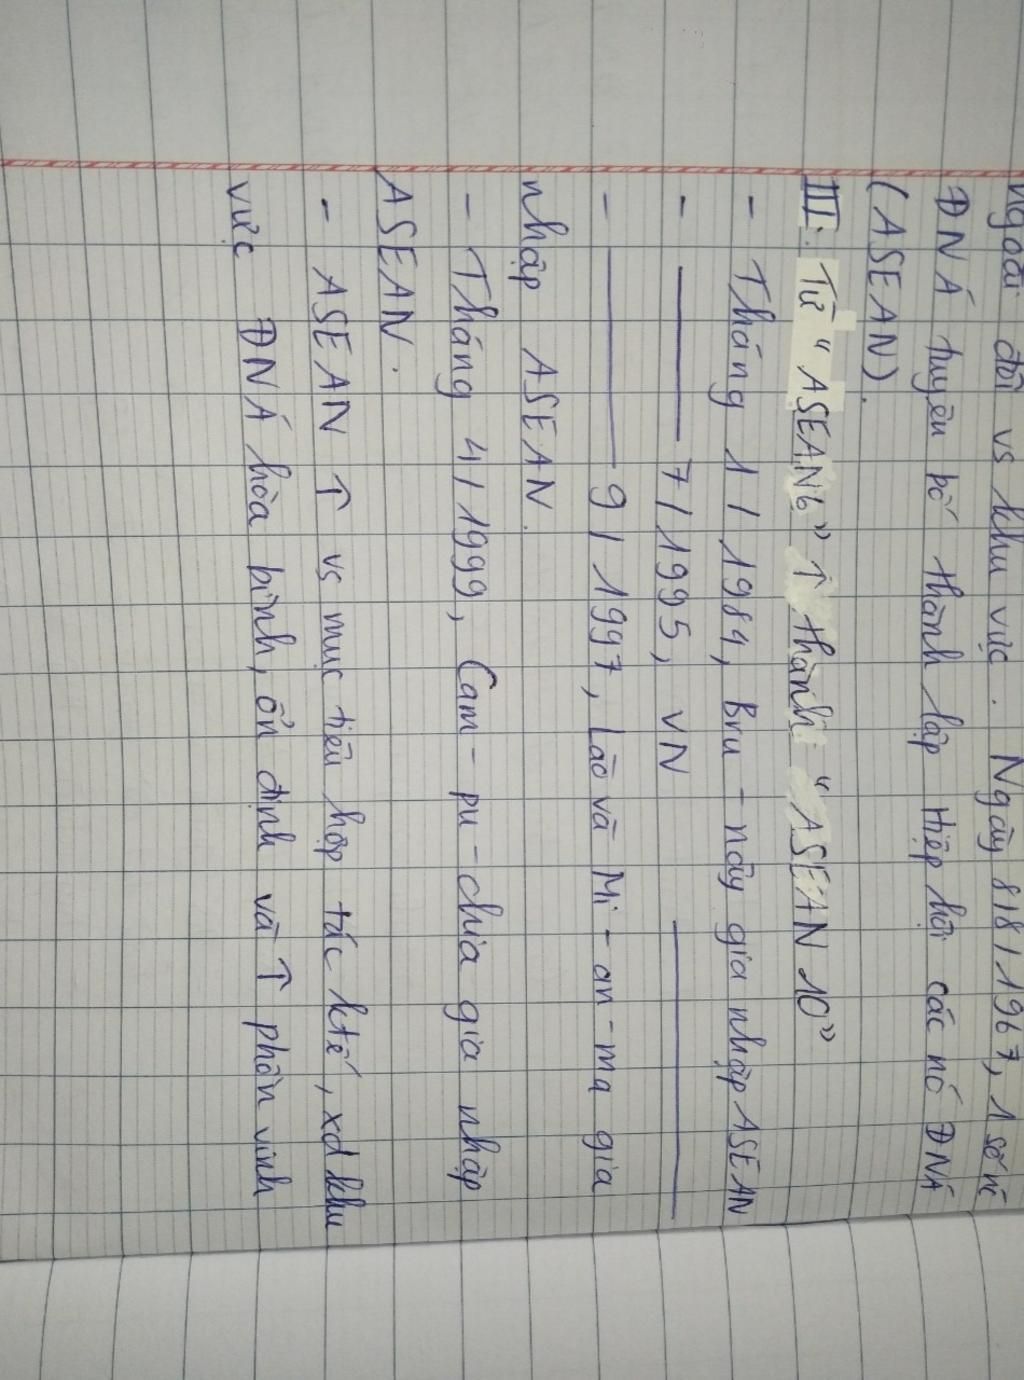 ngoài đối vs khu vực. Ngày 8/8/1967, 1 số nc
ĐNÁ tuyên bố thành lập Hiệp hội các nc ĐNÁ
(ASEAN).
III. Từ "ASEAN6" ↑ thành "ASEAN 10"
- Tháng 1/1984, Bru-nây gia nhập ASEAN
- ——— 7/1995, VN ———
- ——— 9/1997, Lào và Mi-an-ma gia
nhập ASEAN.
- Tháng 4/1999, Cam-pu-chia gia nhập
ASEAN.
- ASEAN ↑ vs mục tiêu hợp tác ktế, xd khu
vực ĐNÁ hòa bình, ổn định và ↑ phồn vinh